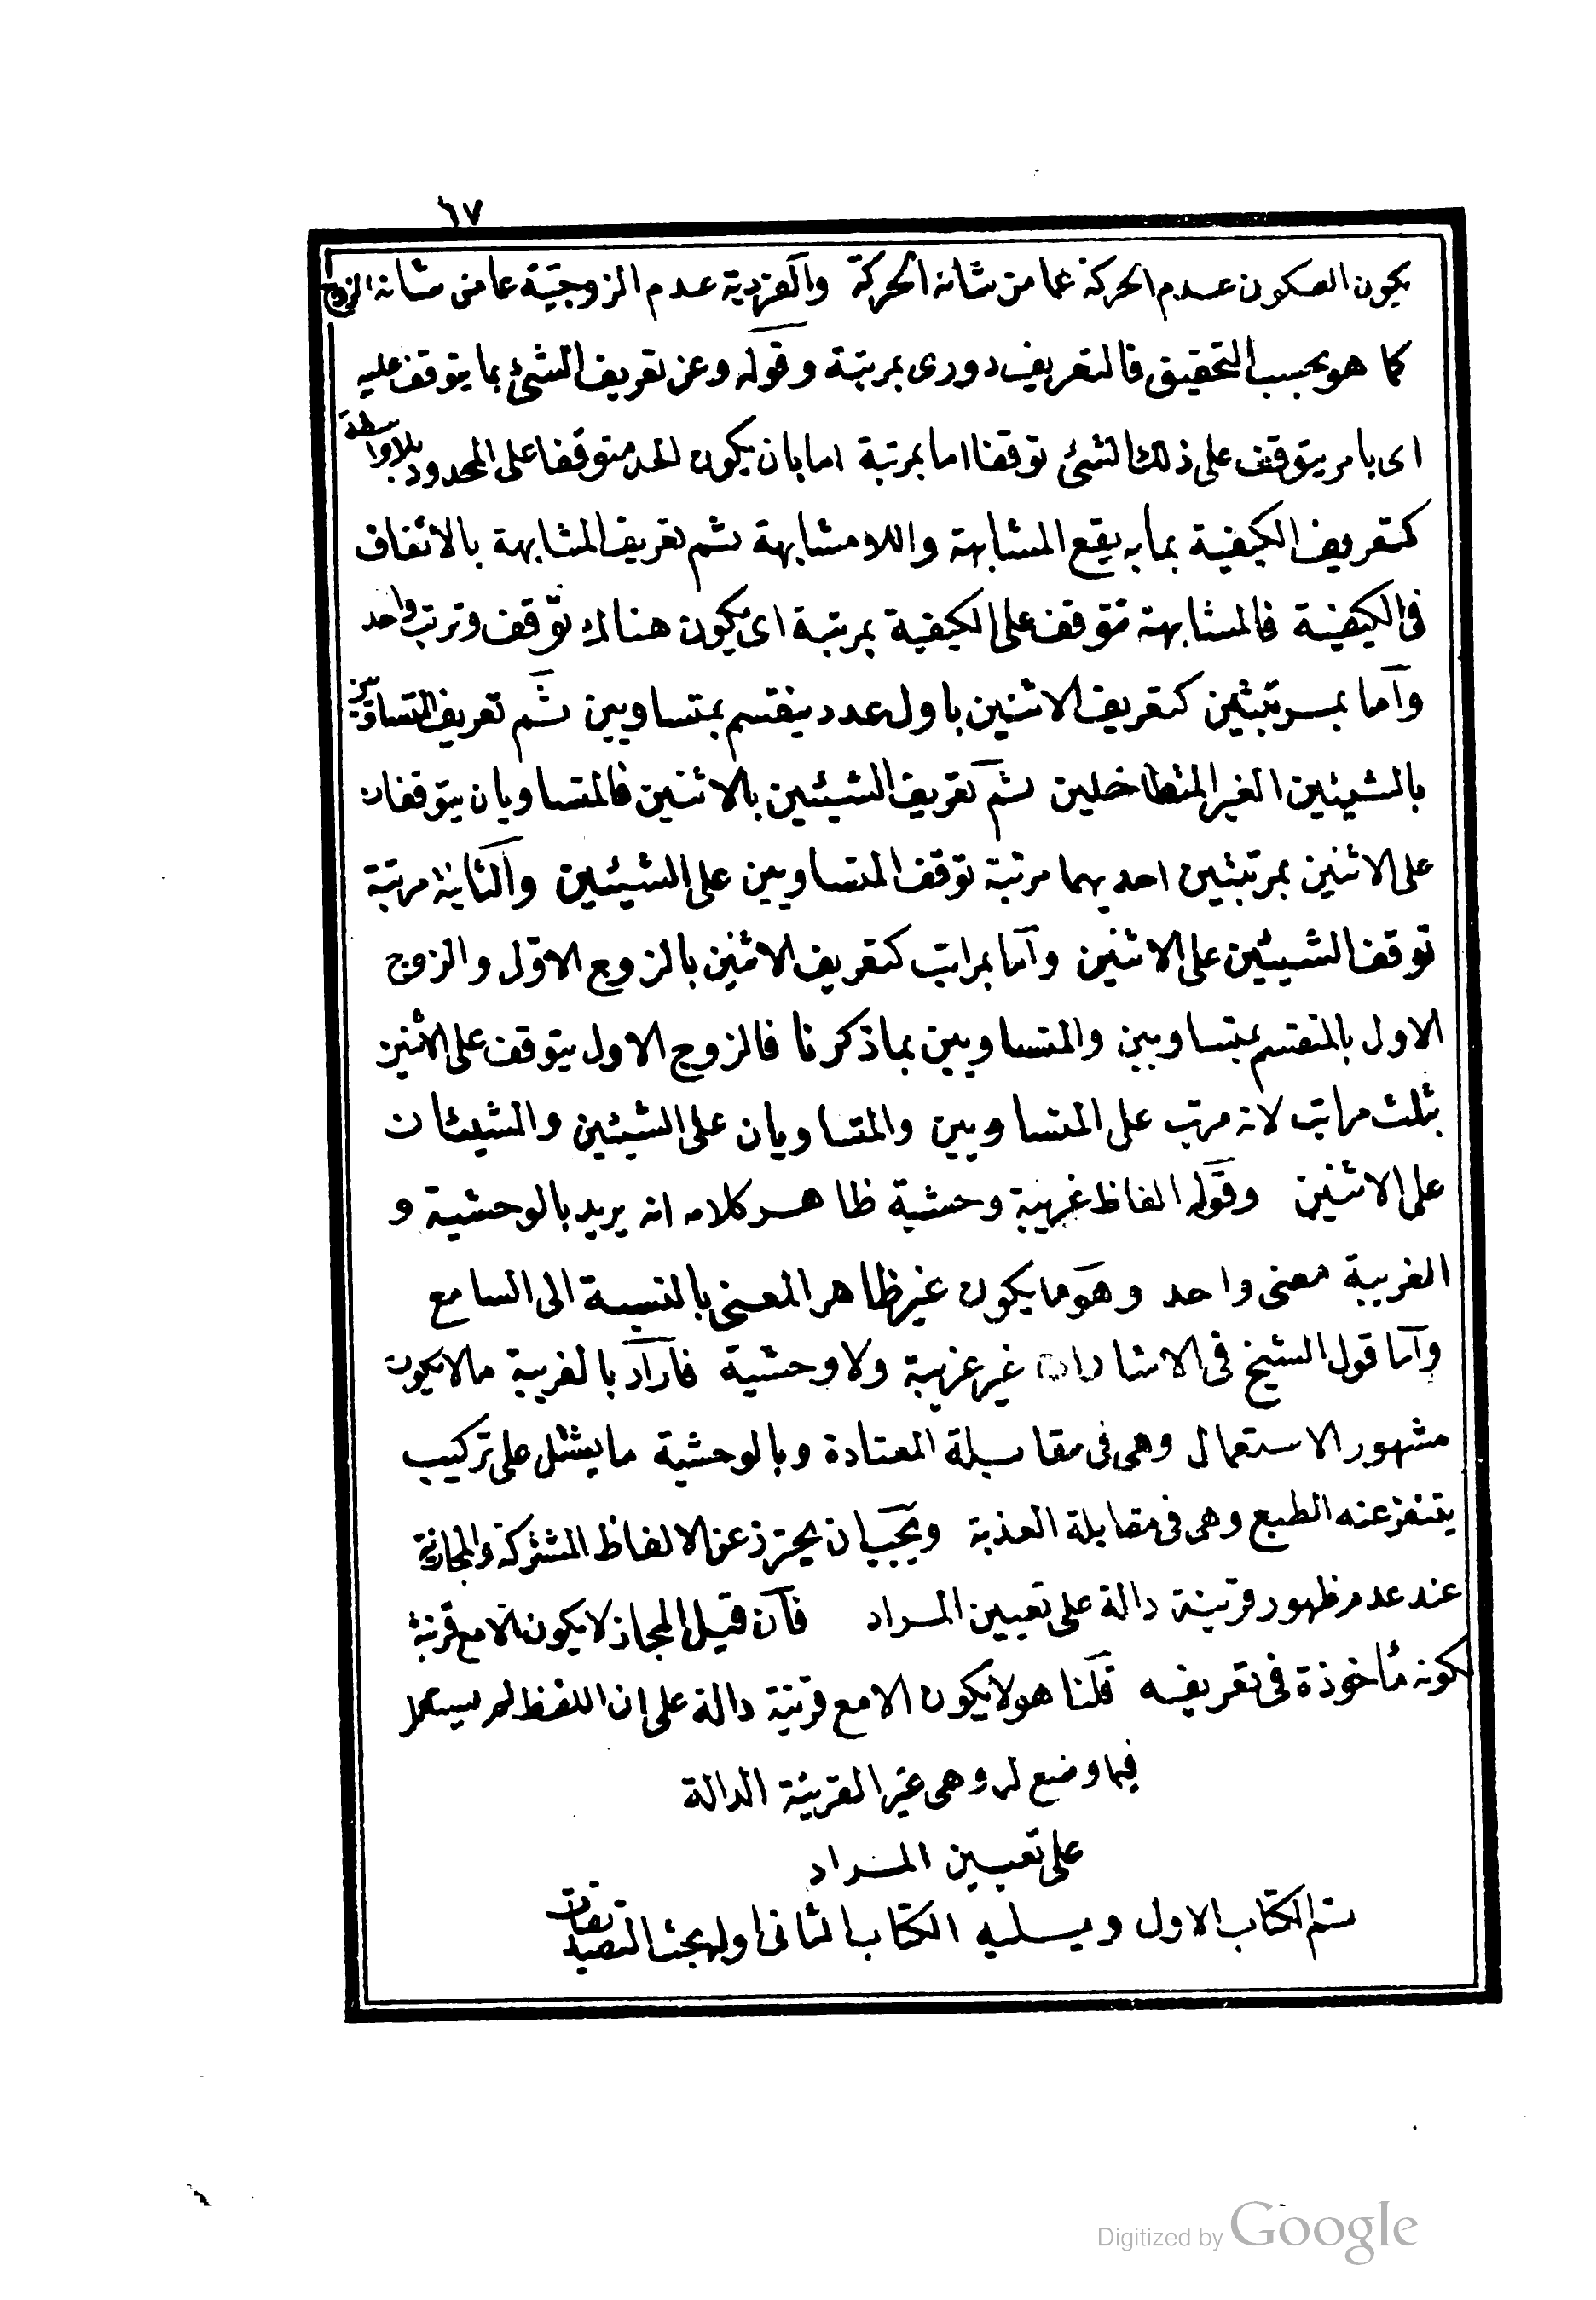 ٦٧
يكون السكون عدم الحركة عما من شانه الحركة والفردية عدم الزوجية عما من شانه الزوج
كما هو بحسب التحقيق فالتعريف دورى بمرتبة وقوله وعن تعريف الشئ بما يتوقف عليه
اى بامر يتوقف على ذلك الشئ توقفا اما بمرتبة اما بان يكون الحد متوقفا على المحدود بلا واسطة
كتعريف الكيفية بما به يقع المشابهة واللا مشابهة ثم تعريف المشابهة بالاتفاق
فى الكيفية فالمشابهة تتوقف على الكيفية بمرتبة اى يكون هناك توقف وترتب واحد
واما بمرتبتين كتعريف الاثنين باول عدد ينقسم بمتساويين ثم تعريف المتساويين
بالشيئين الغير المتطاخلين ثم تعريف الشيئين بالاثنين فالمتساويان يتوقفان
على الاثنين بمرتبتين احديهما مرتبة توقف المتساويين على الشيئين والثانية مرتبة
توقف الشيئين على الاثنين واما بمراتب كتعريف الاثنين بالزوج الاول والزوج
الاول بالمنقسم بمتساويين والمتساويين بما ذكرنا فالزوج الاول يتوقف على الاثنين
بثلث مراتب لانه مرتب على المتساويين والمتساويان على الشيئين والشيئان
على الاثنين وقوله الفاظ غريبة وحشية ظاهر كلامه انه يريد بالوحشية و
الغريبة معنى واحد وهو ما يكون غير ظاهر المعنى بالنسبة الى السامع
واما قول الشيخ فى الاشارات غير غريبة ولا وحشية فاراد بالغريبة ما لا يكون
مشهور الاستعمال وهى فى مقابلة المعتادة وبالوحشية ما يشتل على تركيب
يتنفر عنه الطبع وهى فى مقابلة العذبة ويجب ان يحترز عن الالفاظ المشتركة والمجازية
عند عدم ظهور قرينة دالة على تعيين المراد فان قيل المجاز لا يكون الا مع قرينة
لكونه مأخوذة فى تعريفه قلنا هو لا يكون الا مع قرينة دالة على ان اللفظ لم يستعمل
فيما وضع له وهى غير القرينة الدالة
على تعيين المراد
تم الكتاب الاول ويليه الكتاب الثانى اوله بحث التصديقات
Digitized by Google